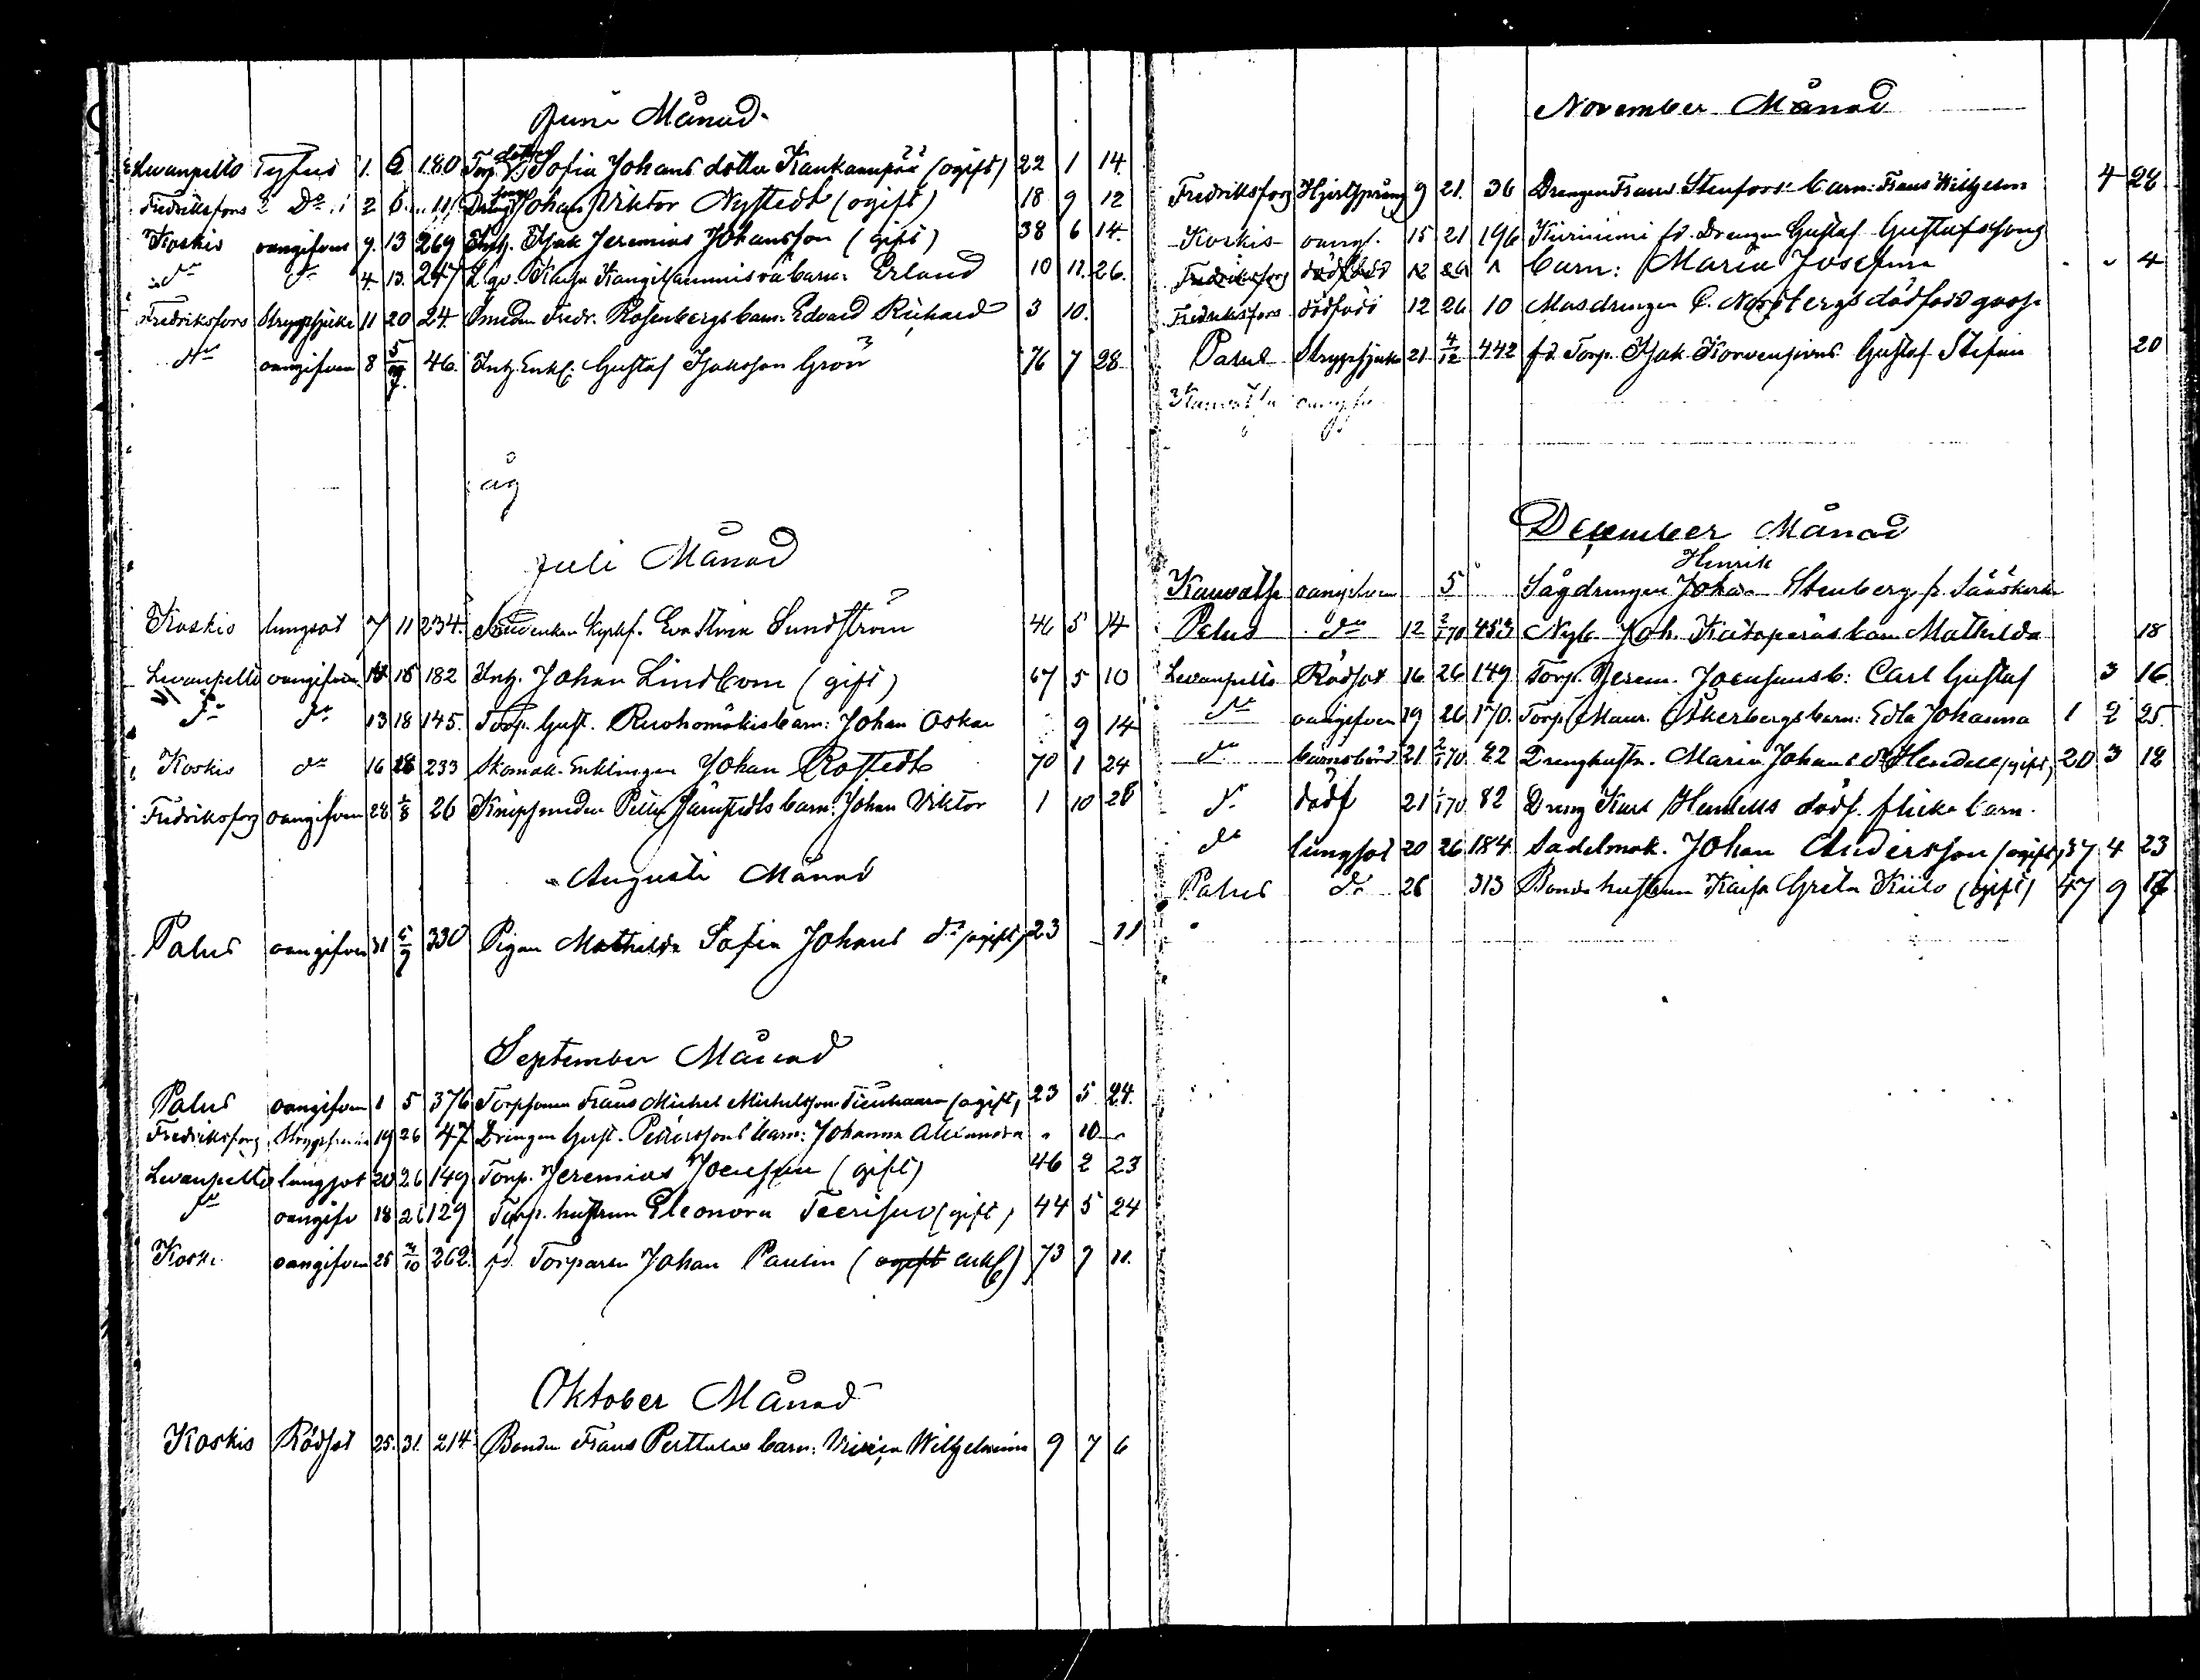 Juni Månad
Levanpelto Tyfus 1. 6 180 Torp. dotter Sofia Johansdotter Kankaanpää (ogift) 22 1 14.
Fredriksfors Do 2 6 11 Dräng Johan Viktor Nystedt (ogift) 18 9 12
Koskis oangifven 9. 13 269 Inh. Isak Jeremias Johansson (gift) 38 6 14.
do do 4. 13. 247 Kaisa barn: Erland 10 11. 26.
Fredriksfors Strypsjuka 11 20 24. Smeden Fredr. Rosenbergs barn. Edvard Richard 3 10.
do oangifven 8 5/7 46. Inh. Enkl. Gustaf Isaksson Grön 76 7 28
åg
Juli Månad
Koskis lungsot 7 11 234. Eva Stina Sundström 46 5 14
Levanpelto oangifven 14 18 182 Inh. Johan Lindbom (gift) 67 5 10
do do 13 18 145. Torp. Gust. Ruohomäkis barn: Johan Oskar 9 14
Koskis do 16 18 233 Skomak. Enklingen Johan Rostedt 70 1 24
Fredriksfors oangifven 28 1/8 26 Knipsmeden Petter Järnstedts barn: Johan Viktor 1 10 28
Augusti Månad
Palus oangifven 31 5/9 330 Pigan Mathilda Sofia Johans dr (ogift) 23 11
September Månad
Palus oangifven 1 5 376 Torpsonen Frans Michel Michelsson (ogift) 23 5 24.
Fredriksfors Strypsjuka 19 26 47 Drengen Gust. Petterssons barn: Johanna Alexandra " 10 "
Levanpelto lungsot 20 26 149 Torp. Jeremias Joensuu (gift) 46 2 23
do oangifv 18 26 129 Torp. hustrun Eleonora Teerisuo (gift) 44 5 24
Koski oangifven 25 3/10 262. fd. Torparen Johan Paulin (ogift enkl) 73 7 11.
Oktober Månad
Koskis Rödsot 25. 31. 214 Bonden Frans Perttulas barn: Wilhelmina 9 7 6
November Månad
Fredriksfors Hjertsprång 9 21. 36 Drengen Frans Stenfors barn: Frans Wilhelm 4 28
Koskis oangf. 15 21 196 Kuriniemi fd. Drengen Gustaf Gustafssons
Fredriksfors dödfödd 12 26 1 barn: Maria Josefina " " 4
Fredriksfors dödfödd 12 26 10 Masdrengen C. Nordbergs dödfödd gosse
Palus Strypsjuka 21 4/12 442 fd. Torp. Isak Korvensivus Gustaf Stefan 20
December Månad
Henrik
Kauvatsa oangifven 5 Sågdrengen Johan Stenberg fr. Sääskoski
Palus do 12 2/1 70 453 Nyb. Joh. Katoperäs barn Mathilda 18
Levanpelto Rödsot 16 26 149 Torp. Jerem. Joensuus b: Carl Gustaf 3 16.
do oangifven 19 26 170. Torp. Maur. Åkerbergs barn: Edla Johanna 1 2 25
do barnsbörd 21 2/1 70. 82 Drenghustr. Maria Johans dr Hendell (gift) 20 3 12
do dödf 21 2/1 70 82 Dreng Karl Hendells dödf. flicke barn.
do lungsot 20 26 184 Sadelmak. Johan Andersson (ogift) 37 4 23
Palus do 26 313 Bonde hustrun Kaisa Greta Kiilo (gift) 47 9 17